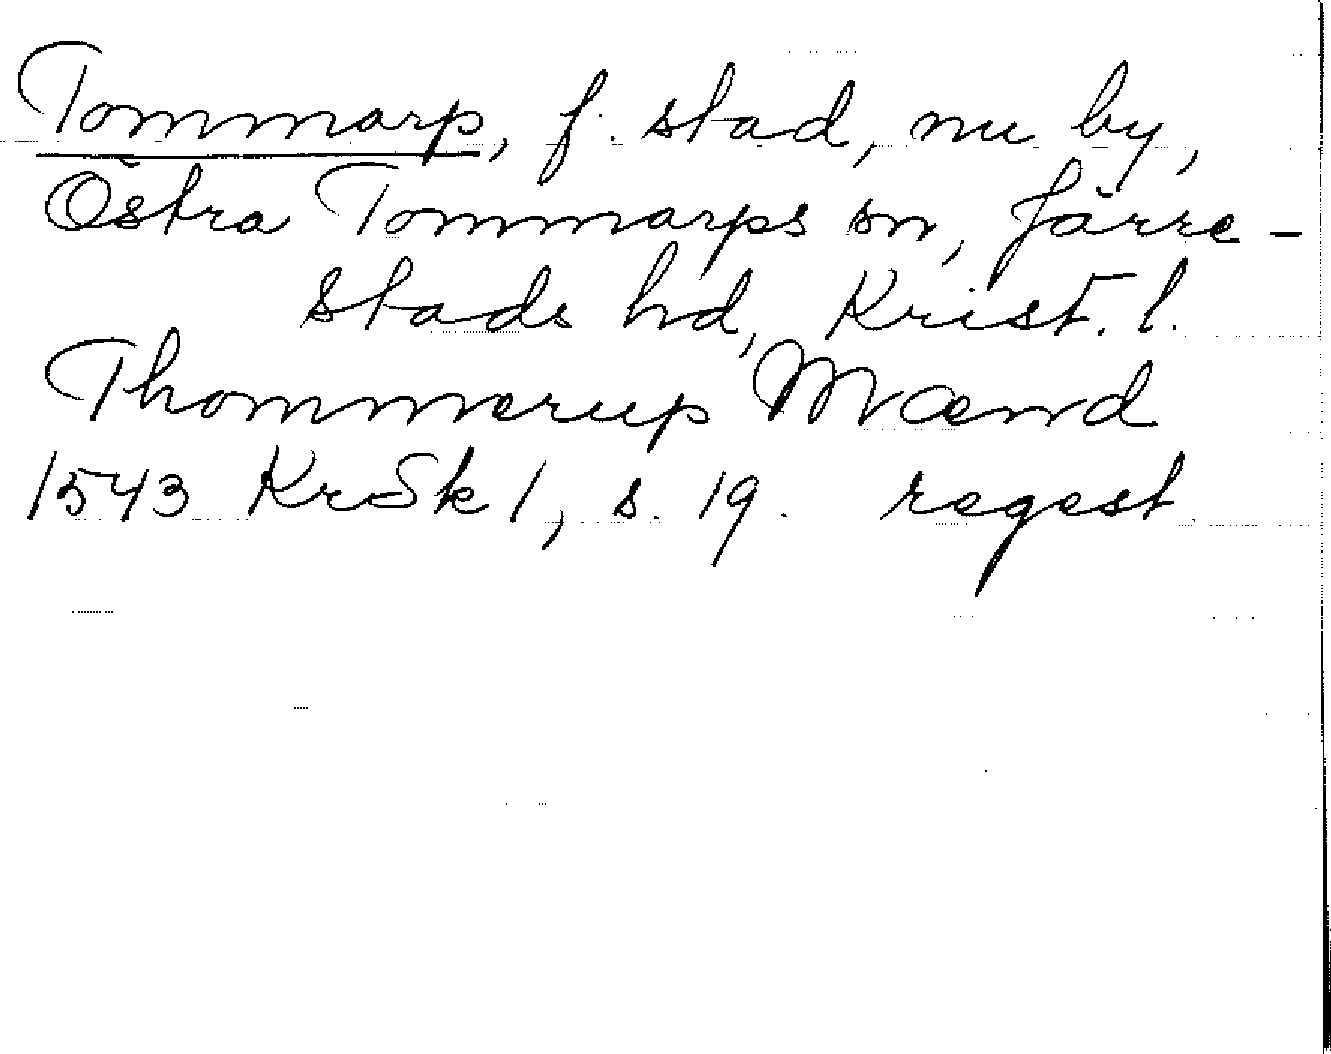 Tommarp, f. stad, nu by,
Östra Tommarps sn, Järre-
stads hd, Krist. l.
Thommerup Mænd
1543 KrSk 1, s. 19. regest